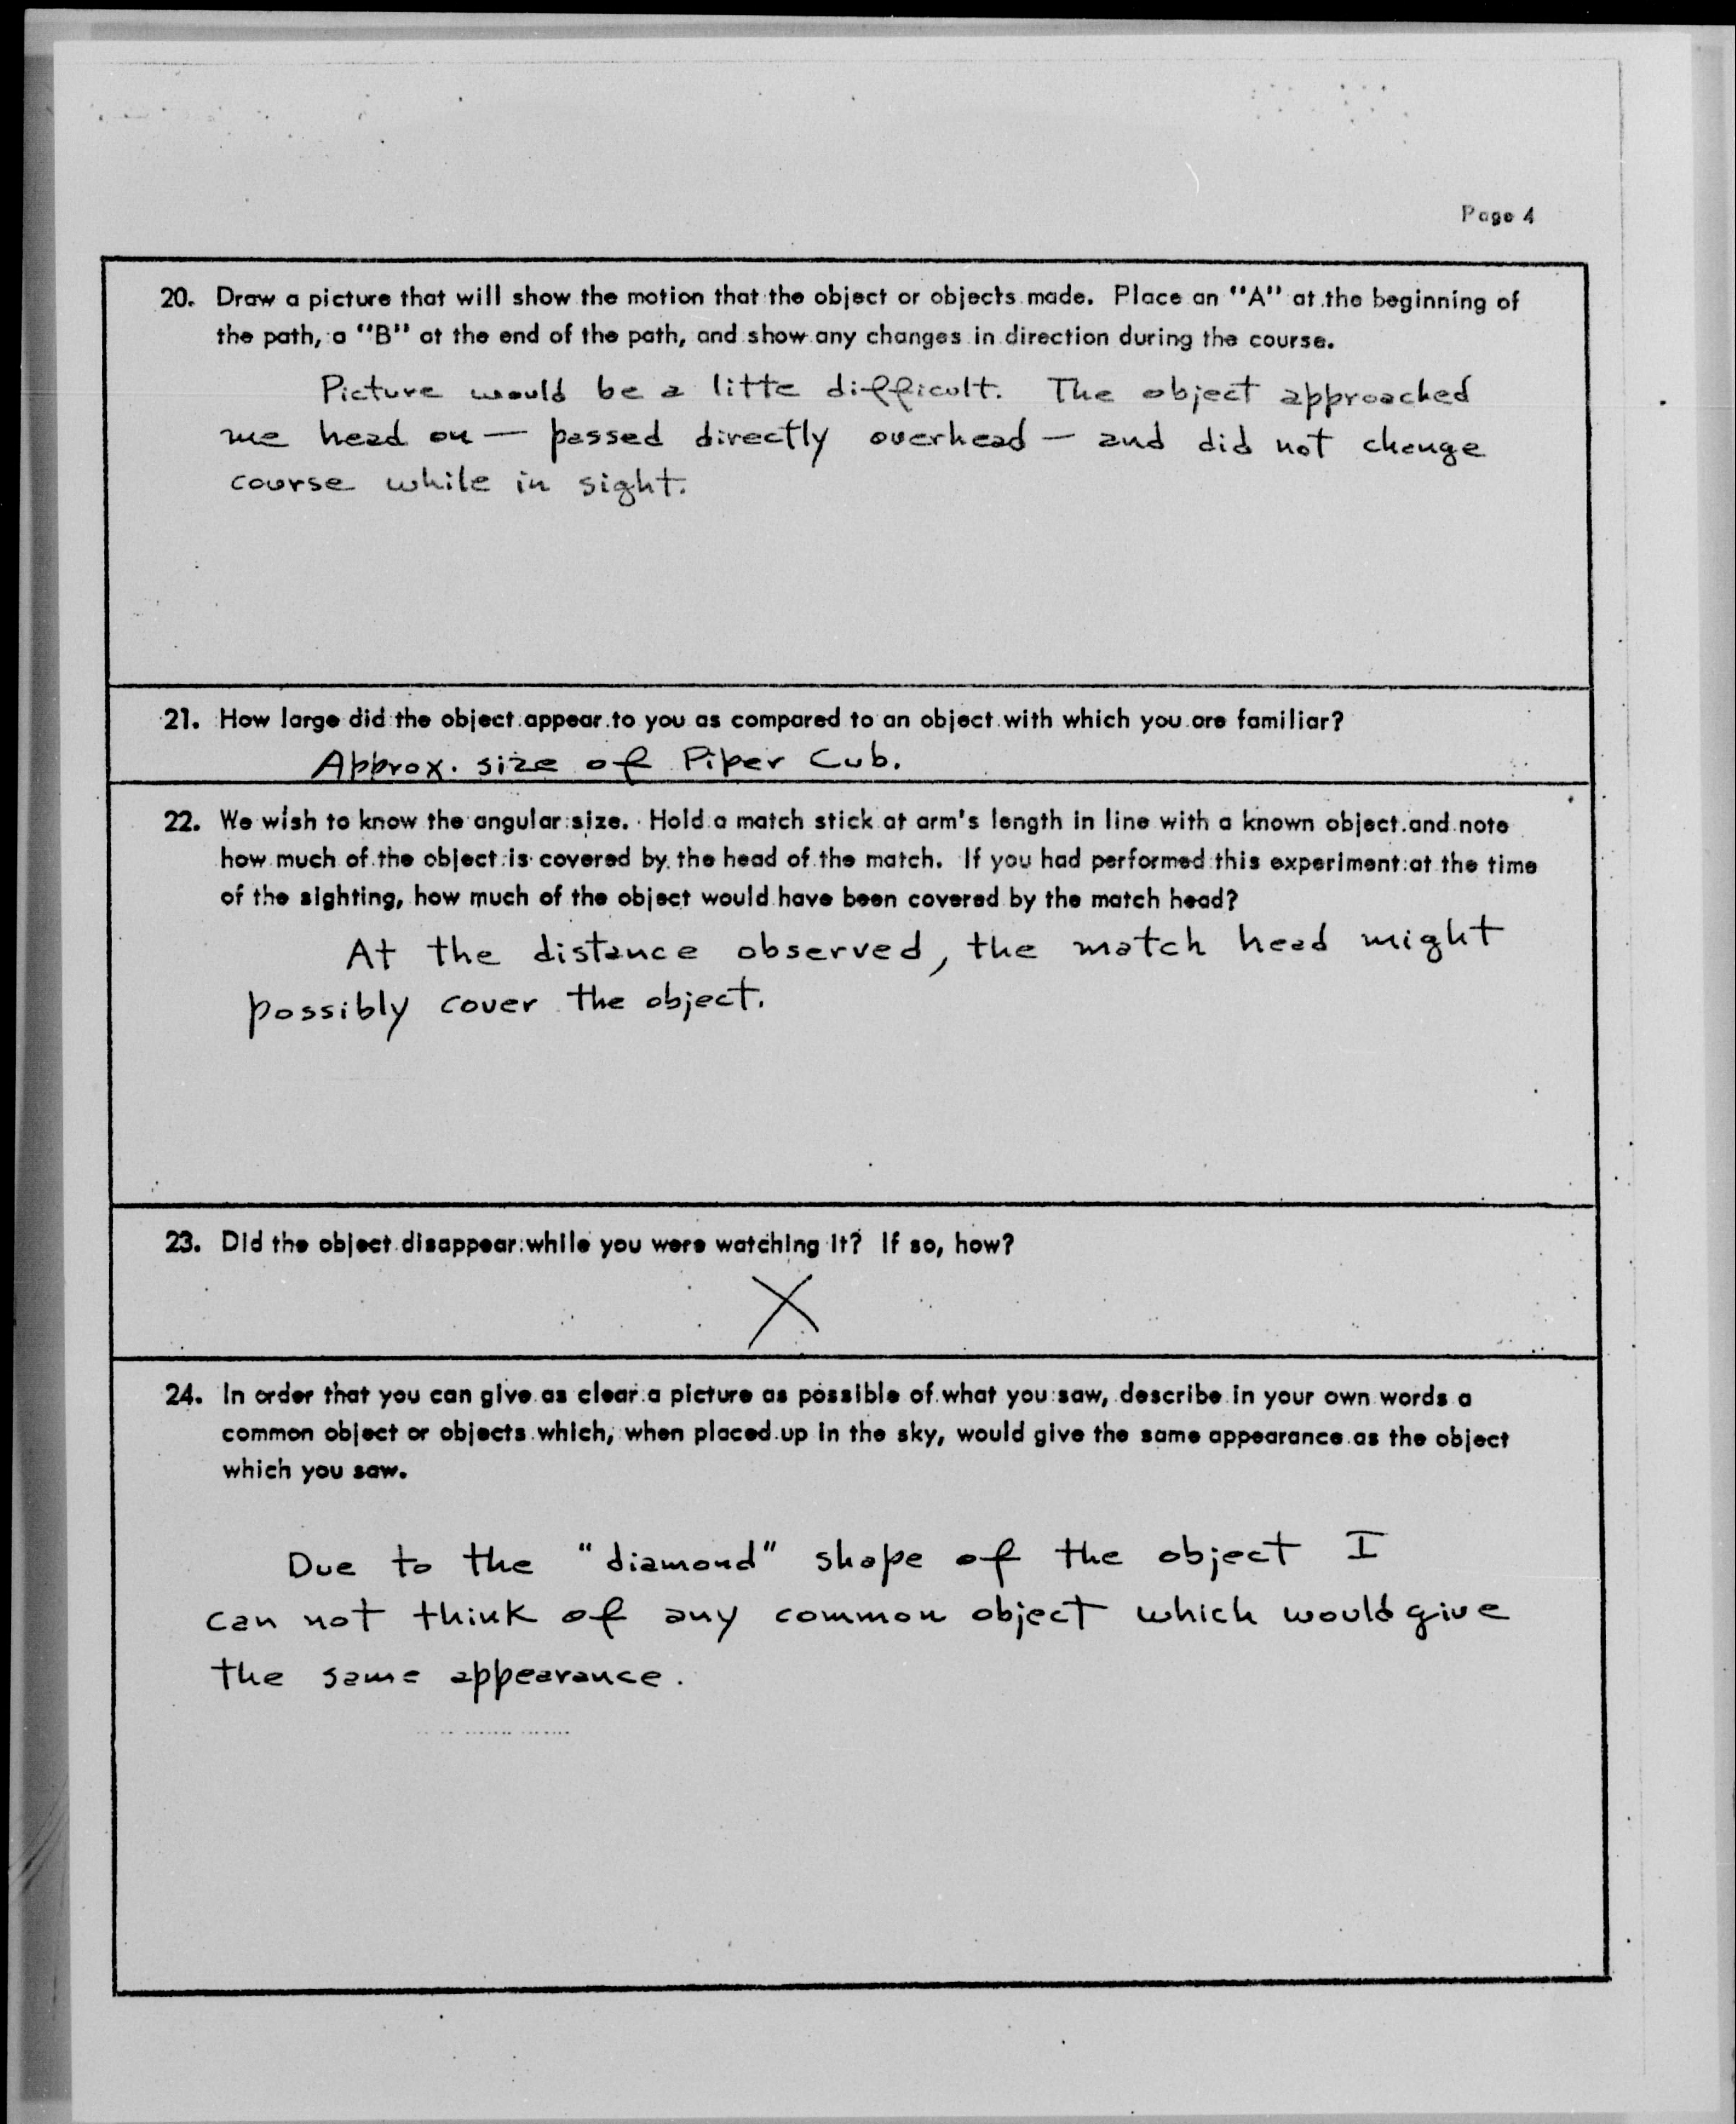 Page 4
20. Draw a picture that will show the motion that the object or objects made. Place an "A" at the beginning of
the path, a "B" at the end of the path, and show any changes in direction during the course.
Picture would be a litte difficult. The object approached
me head on — passed directly overhead — and did not change
course while in sight.
21. How large did the object appear to you as compared to an object with which you are familiar?
Approx. size of Piper Cub.
22. We wish to know the angular size. Hold a match stick at arm's length in line with a known object and note
how much of the object is covered by the head of the match. If you had performed this experiment at the time
of the sighting, how much of the object would have been covered by the match head?
At the distance observed, the match head might
possibly cover the object.
23. Did the object disappear while you were watching it? If so, how?
X
24. In order that you can give as clear a picture as possible of what you saw, describe in your own words a
common object or objects which, when placed up in the sky, would give the same appearance as the object
which you saw.
Due to the "diamond" shape of the object I
can not think of any common object which would give
the same appearance.